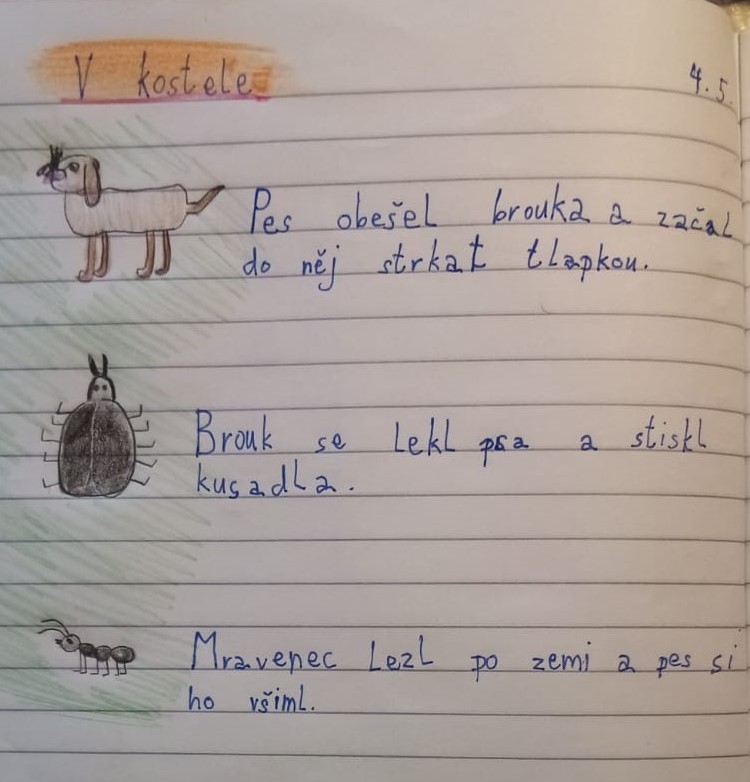 V kostele
4.5.
Pes obešel brouka a začal
do něj strkat tlapkou.
Brouk se lekl psa a stiskl
kusadla.
Mravenec lezl po zemi a pes si
ho všiml.